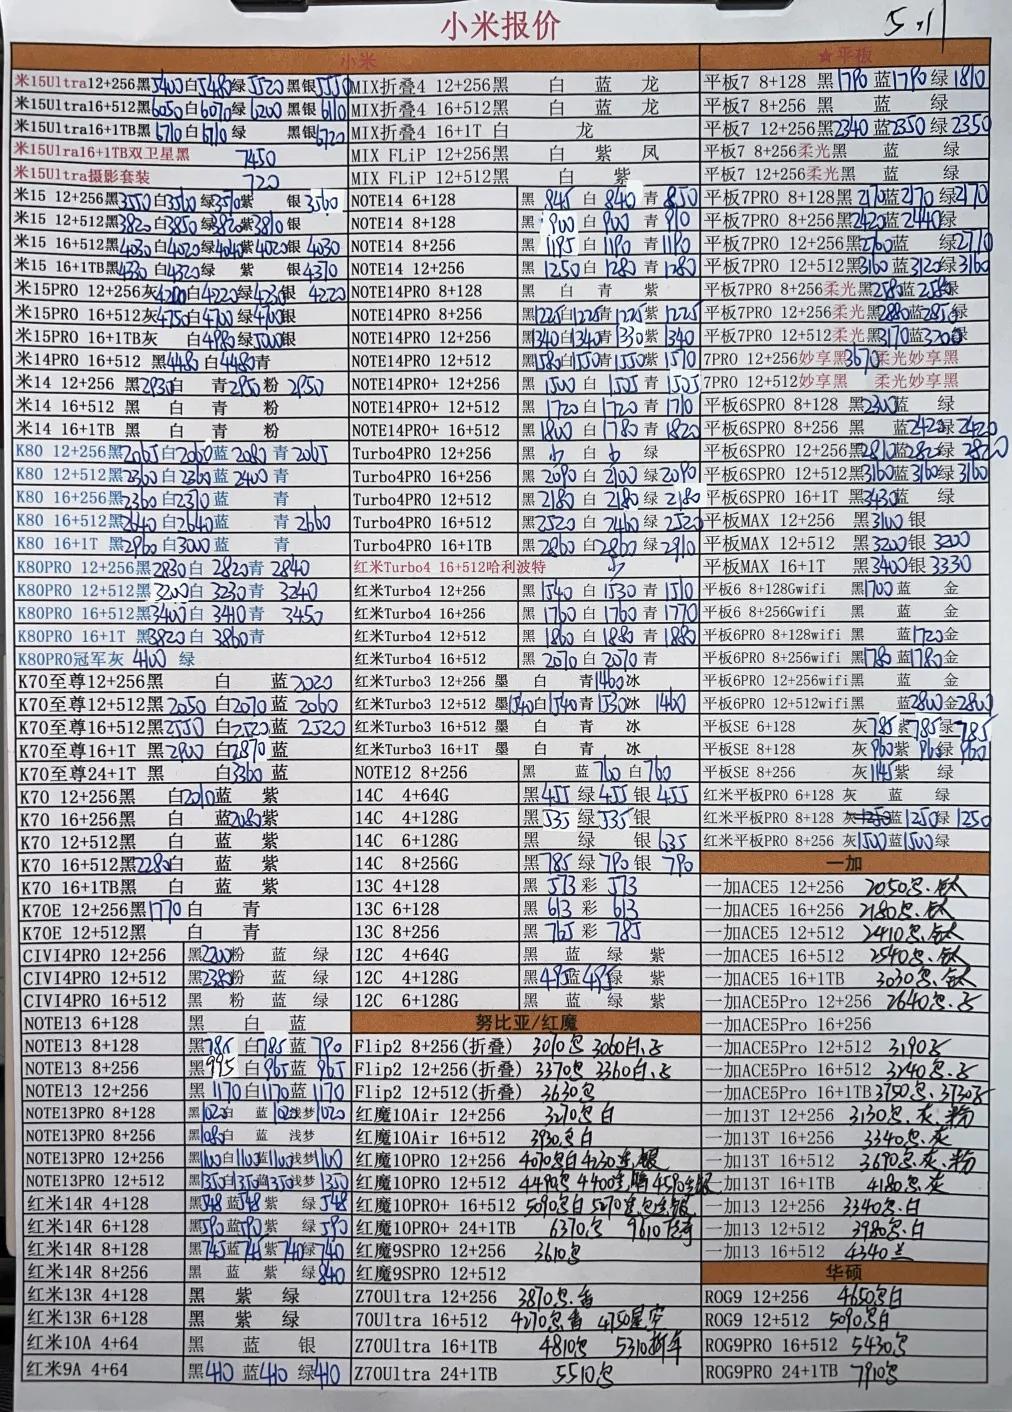 小米报价
5.11
小米
★平板
米15Ultra12+256黑5400白5480绿5520 黑银5550
米15Ultra16+512黑6050白6070绿6200 黑银6110
米15Ultra16+1TB黑6710白6710绿 黑银6720
米15Ulra16+1TB双卫星黑 7450
米15Ultra摄影套装 720
米15 12+256黑3550白3560绿3570紫 银3560
米15 12+512黑3820白3850绿3820紫3810银
米15 16+512黑4030白4020绿4040紫4020银4030
米15 16+1TB黑4330白4320绿 紫 银4370
米15PRO 12+256灰4200白4220绿4230银 4220
米15PRO 16+512灰4750白4700绿4700银
米15PRO 16+1TB灰 白4980绿5000银
米14PRO 16+512 黑4480白4480青
米14 12+256 黑2930白 青2950粉 2950
米14 16+512 黑 白 青 粉
米14 16+1TB 黑 白 青 粉
K80 12+256黑2065白2060蓝2080青2065
K80 12+512黑2360白2360蓝2400青
K80 16+256黑2360白2370蓝 青
K80 16+512黑2640白2640蓝 青2660
K80 16+1T 黑2960白3000蓝 青
K80PRO 12+256黑2830白 2820青 2840
K80PRO 12+512黑3200白 3230青 3240
K80PRO 16+512黑3400白 3410青 3450
K80PRO 16+1T 黑3820白 3860青
K80PRO冠军灰 4100 绿
K70至尊12+256黑 白 蓝2020
K70至尊12+512黑2050白2070蓝 2060
K70至尊16+512黑2550白2520蓝 2520
K70至尊16+1T 黑2900白2870蓝
K70至尊24+1T 黑 白3360蓝
K70 12+256黑 白2010蓝 紫
K70 16+256黑 白 蓝2080紫
K70 12+512黑 白 蓝 紫
K70 16+512黑2280白 蓝 紫
K70 16+1TB黑 白 蓝 紫
K70E 12+256黑1770白 青
K70E 12+512黑 白 青
CIVI4PRO 12+256 黑2200粉 蓝 绿
CIVI4PRO 12+512 黑2380粉 蓝 绿
CIVI4PRO 16+512 黑 粉 蓝 绿
NOTE13 6+128 黑 白 蓝
NOTE13 8+128 黑785白785蓝790
NOTE13 8+256 黑995白965蓝965
NOTE13 12+256 黑1170白1170蓝1170
NOTE13PRO 8+128 黑1020白 蓝1020浅梦1020
NOTE13PRO 8+256 黑1080白 蓝 浅梦
NOTE13PRO 12+256 黑1100白1100蓝1100浅梦1100
NOTE13PRO 12+512 黑1350白1350蓝1350浅梦1350
红米14R 4+128 黑548蓝548紫 绿548
红米14R 6+128 黑590蓝590紫 绿590
红米14R 8+128 黑745蓝745紫740绿740
红米14R 8+256 黑 蓝 紫 绿840
红米13R 4+128 黑 紫 绿
红米13R 6+128 黑 紫 绿
红米10A 4+64 黑 蓝 银
红米9A 4+64 黑410蓝410绿410
MIX折叠4 12+256黑 白 蓝 龙
MIX折叠4 16+512黑 白 蓝 龙
MIX折叠4 16+1T 白 龙
MIX FLiP 12+256黑 白 紫 凤
MIX FLiP 12+512黑 白 紫
NOTE14 6+128 黑845白840青850
NOTE14 8+128 黑900白900青910
NOTE14 8+256 黑1195白1190青1190
NOTE14 12+256 黑1250白1280青1280
NOTE14PRO 8+128 黑 白 青 紫
NOTE14PRO 8+256 黑1225白1225青1225紫1225
NOTE14PRO 12+256 黑1340白1340青1330紫1340
NOTE14PRO 12+512 黑1580白1550青1550紫1570
NOTE14PRO+ 12+256 黑1500白1505青1505
NOTE14PRO+ 12+512 黑1720白1720青1710
NOTE14PRO+ 16+512 黑1800白1780青1820
Turbo4PRO 12+256 黑 白 绿
Turbo4PRO 16+256 黑2090白2100绿2090
Turbo4PRO 12+512 黑2180白2180绿2180
Turbo4PRO 16+512 黑2520白2460绿2520
Turbo4PRO 16+1TB 黑2860白2860绿2910
红米Turbo4 16+512哈利波特
红米Turbo4 12+256 黑1540白1530青1510
红米Turbo4 16+256 黑1760白1760青1770
红米Turbo4 12+512 黑1860白1880青1880
红米Turbo4 16+512 黑2070白2070青
红米Turbo3 12+256 墨 白 青1460冰
红米Turbo3 12+512 墨1540白1540青1530冰 1460
红米Turbo3 16+512 墨 白 青 冰
红米Turbo3 16+1T 墨 白 青 冰
NOTE12 8+256 黑 蓝760白760
14C 4+64G 黑455绿455银455
14C 4+128G 黑535绿535银
14C 6+128G 黑 绿 银635
14C 8+256G 黑785绿790银790
13C 4+128 黑573彩573
13C 6+128 黑613彩613
13C 8+256 黑765彩785
12C 4+64G 黑 蓝 绿 紫
12C 4+128G 黑495蓝495绿 紫
12C 6+128G 黑 蓝 绿 紫
努比亚/红魔
Flip2 8+256(折叠) 3070 3060白
Flip2 12+256(折叠) 3370 3360白
Flip2 12+512(折叠) 3630
红魔10Air 12+256 3270 白
红魔10Air 16+512 3930 白
红魔10PRO 12+256 4070 白4230
红魔10PRO 12+512 4490 4400 4590
红魔10PRO+ 16+512 5090 白5070
红魔10PRO+ 24+1TB 6370 9610
红魔9SPRO 12+256 3610
红魔9SPRO 12+512
Z70Ultra 12+256 3870
70Ultra 16+512 4270 4750星空
Z70Ultra 16+1TB 4810 5310
Z70Ultra 24+1TB 5510
平板7 8+128 黑1790蓝1790绿1810
平板7 8+256 黑 蓝 绿
平板7 12+256黑2340蓝2350绿2350
平板7 8+256柔光黑 蓝 绿
平板7 12+256柔光黑 蓝 绿
平板7PRO 8+128黑2170蓝2170绿2170
平板7PRO 8+256黑2420蓝2440绿
平板7PRO 12+256黑2760蓝 绿2770
平板7PRO 12+512黑3160蓝3120绿3160
平板7PRO 8+256柔光黑2580蓝2580绿
平板7PRO 12+256柔光黑2880蓝2850绿
平板7PRO 12+512柔光黑3170蓝3200绿
7PRO 12+256妙享黑3670柔光妙享黑
7PRO 12+512妙享黑 柔光妙享黑
平板6SPRO 8+128 黑2300蓝 绿
平板6SPRO 8+256 黑 蓝2420绿2420
平板6SPRO 12+256黑2810蓝2820绿2820
平板6SPRO 12+512黑3160蓝3160绿3160
平板6SPRO 16+1T 黑3430蓝 绿
平板MAX 12+256 黑3100银
平板MAX 12+512 黑3200银 3200
平板MAX 16+1T 黑3400银 3330
平板6 8+128Gwifi 黑1700蓝 金
平板6 8+256Gwifi 黑 蓝 金
平板6PRO 8+128wifi 黑 蓝1720金
平板6PRO 8+256wifi 黑1780蓝1780金
平板6PRO 12+256wifi黑 蓝 金
平板6PRO 12+512wifi黑 蓝2800金2800
平板SE 6+128 灰785紫785绿785
平板SE 8+128 灰960紫960绿960
平板SE 8+256 灰1145紫 绿
红米平板PRO 6+128 灰 蓝 绿
红米平板PRO 8+128 灰1250蓝1250绿1250
红米平板PRO 8+256 灰1500蓝1500绿
一加
一加ACE5 12+256 2050 钛
一加ACE5 16+256 2180 钛
一加ACE5 12+512 2410 钛
一加ACE5 16+512 2540 钛
一加ACE5 16+1TB 3030 钛
一加ACE5Pro 12+256 2640
一加ACE5Pro 16+256
一加ACE5Pro 12+512 3190
一加ACE5Pro 16+512 3240
一加ACE5Pro 16+1TB3750 3730
一加13T 12+256 3130 灰 粉
一加13T 16+256 3340 灰
一加13T 16+512 3690 灰 粉
一加13T 16+1TB 4180 灰
一加13 12+256 3340 白
一加13 12+512 3980 白
一加13 16+512 4340
华硕
ROG9 12+256 4650 白
ROG9 12+512 5090 白
ROG9PRO 16+512 5430
ROG9PRO 24+1TB 7910